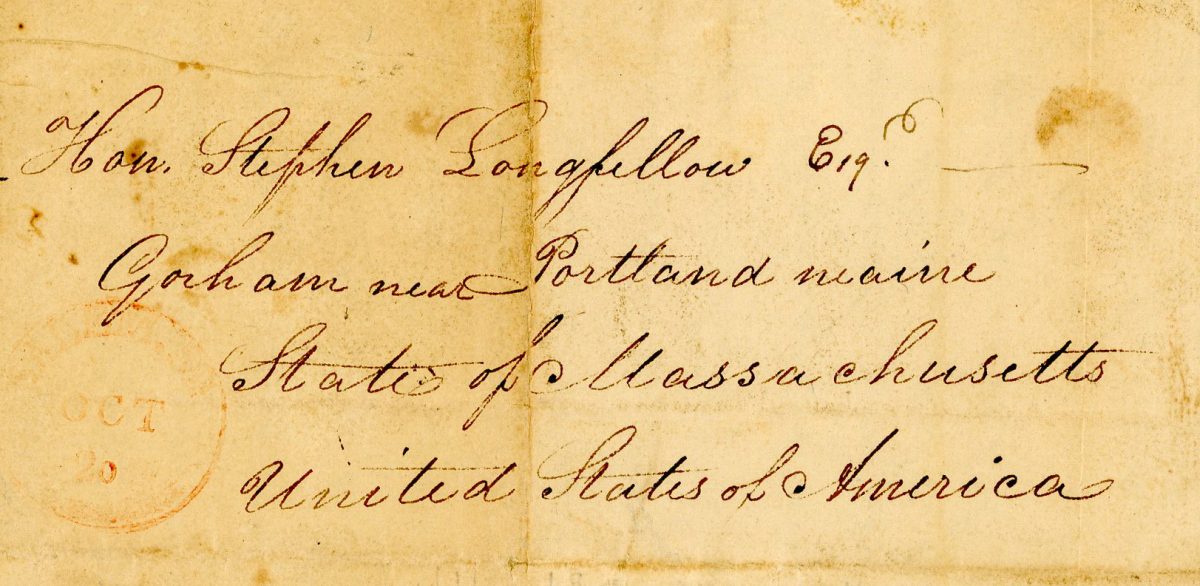 Hon. Stephen Longfellow Esqr.
Gorham near Portland maine
State of Massachusetts
United States of America
OCT
20